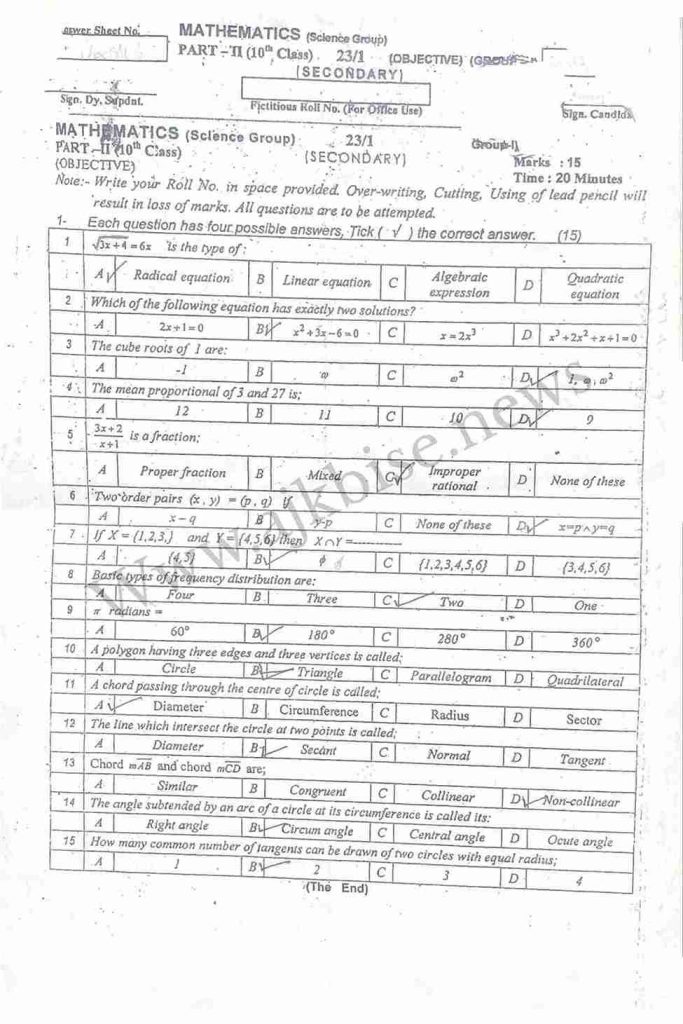 MATHEMATICS (Science Group)
Answer Sheet No.
PART – II (10th Class) 23/1 (OBJECTIVE)
(SECONDARY)
Sign. Dy. Supdnt.
Fictitious Roll No. (For Office Use)
Sign. Candida
MATHEMATICS (Science Group) 23/1 Group-I
PART – II (10th Class) (SECONDARY) Marks : 15
(OBJECTIVE) Time : 20 Minutes
Note:- Write your Roll No. in space provided. Over-writing, Cutting, Using of lead pencil will
result in loss of marks. All questions are to be attempted.
1- Each question has four possible answers, Tick ( √ ) the correct answer. (15)
1 √3x+4 = 6x is the type of :
A √ Radical equation B Linear equation C Algebraic expression D Quadratic equation
2 Which of the following equation has exactly two solutions?
A 2x+1=0 B √ x²+3x−6=0 C x=2x³ D x³+2x²+x+1=0
3 The cube roots of 1 are:
A -1 B ω C ω² D √ 1, ω, ω²
4 The mean proportional of 3 and 27 is;
A 12 B 11 C 10 D √ 9
5 3x+2 / x+1 is a fraction;
A Proper fraction B Mixed C √ Improper rational D None of these
6 Two order pairs (x , y) = (p , q) if
A x – q B y-p C None of these D √ x=p∧y=q
7 If X = {1,2,3,} and Y = {4,5,6} then X∩Y =------------
A {4,5} B √ ϕ C {1,2,3,4,5,6} D {3,4,5,6}
8 Basic types of frequency distribution are:
A Four B Three C √ Two D One
9 π radians =
A 60° B √ 180° C 280° D 360°
10 A polygon having three edges and three vertices is called;
A Circle B √ Triangle C Parallelogram D Quadrilateral
11 A chord passing through the centre of circle is called;
A √ Diameter B Circumference C Radius D Sector
12 The line which intersect the circle at two points is called;
A Diameter B √ Secant C Normal D Tangent
13 Chord mAB and chord mCD are;
A Similar B Congruent C Collinear D √ Non-collinear
14 The angle subtended by an arc of a circle at its circumference is called its:
A Right angle B √ Circum angle C Central angle D Ocute angle
15 How many common number of tangents can be drawn of two circles with equal radius;
A 1 B √ 2 C 3 D 4
(The End)
www.ajkbise.news